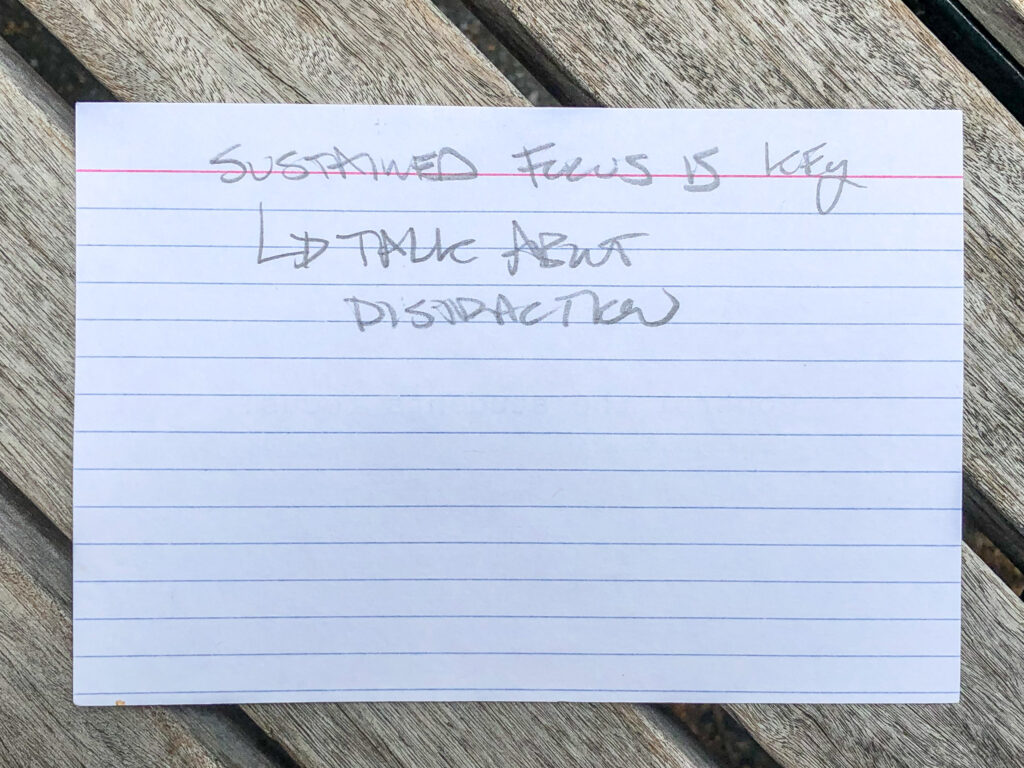 SUSTAINED FOCUS IS KEY
↳ TALK ABOUT
DISTRACTION